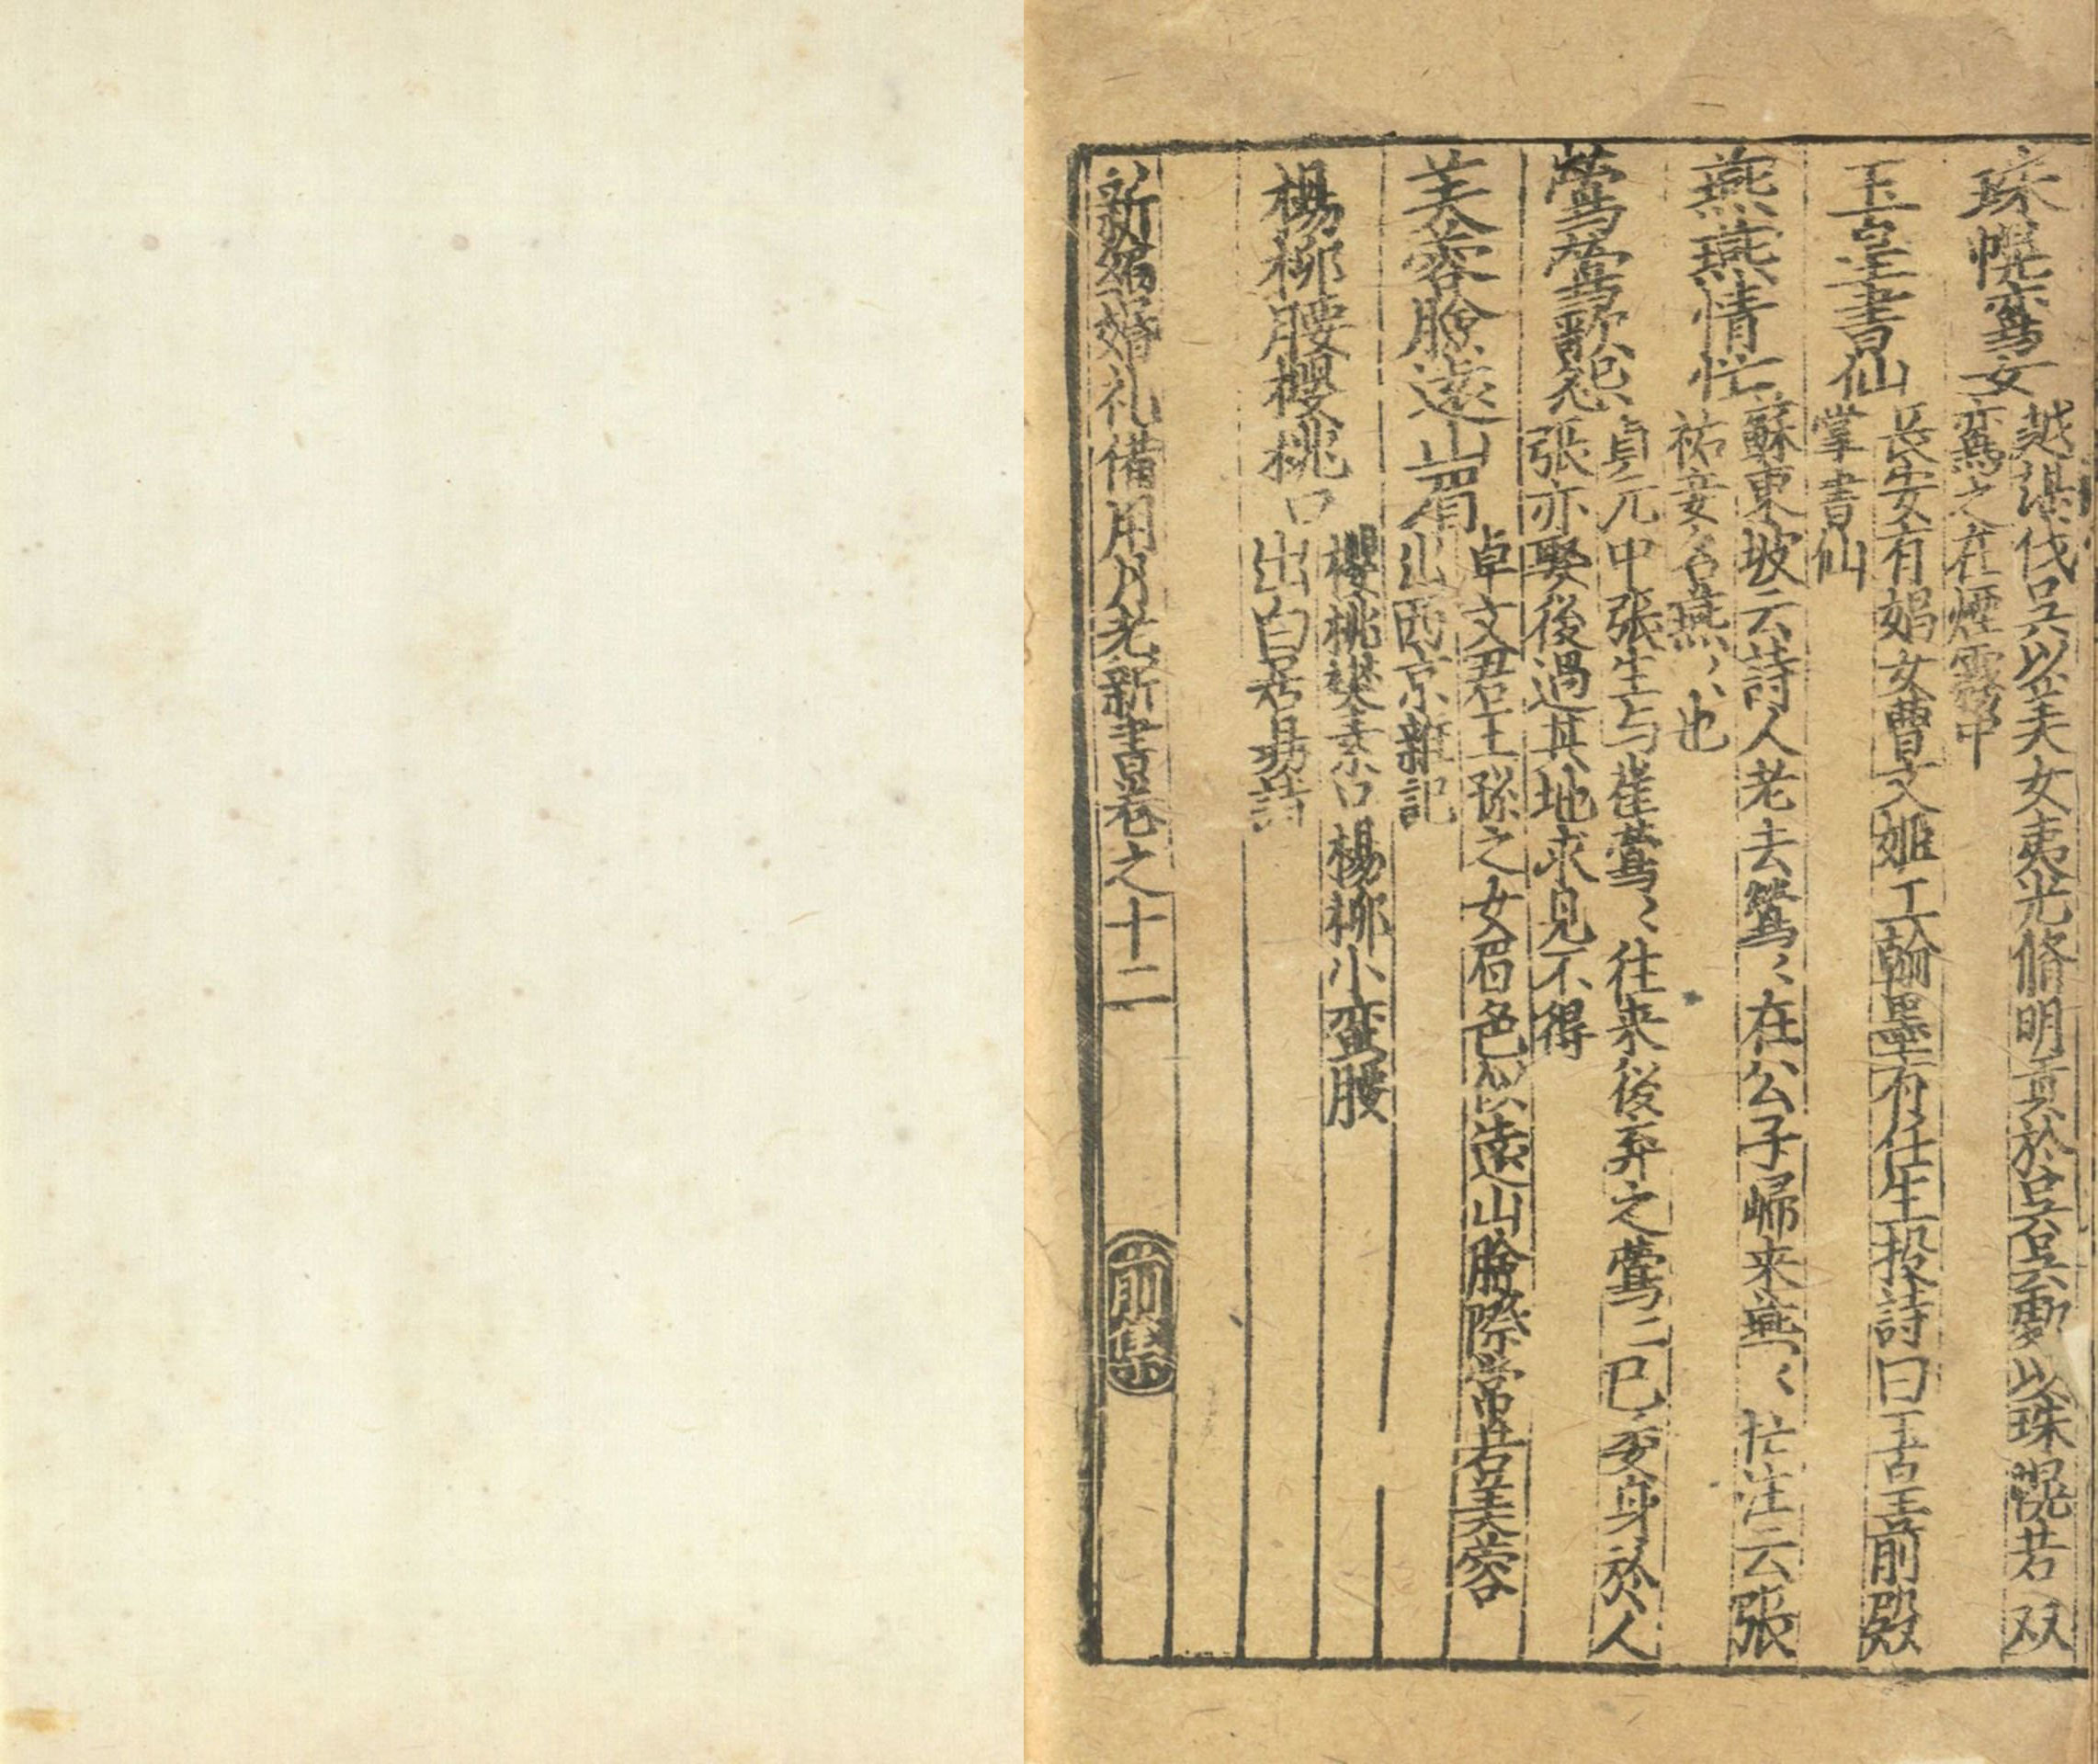 珠幌鸞女
越謀伐吳以美夫女夷光脩明貢於吳吳處以珠幌若双
鸞之在煙霧中
玉皇書仙
長安有娼女曹文姬工翰墨有任生投詩曰玉皇前殿
掌書仙
燕燕情忙
蘇東坡云詩人老去鶯〻在公子歸来燕〻忙注云張
祐妾名燕〻也
鶯鶯歌怨
貞元中張生与崔鶯〻往来後弃之鶯〻已委身於人
張亦娶後過其地求見不得
芙蓉臉遠山眉
卓文君王孫之女眉色似遠山臉際常若芙蓉
出西京雜記
楊柳腰櫻桃口
櫻桃樊素口楊柳小蛮腰
出白居易詩
新編婚礼備用月老新書卷之十二
前集